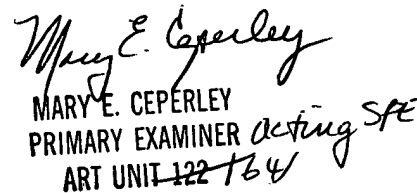 Mary E. Ceperley
MARY E. CEPERLEY
PRIMARY EXAMINER acting SPE
ART UNIT 122 1641